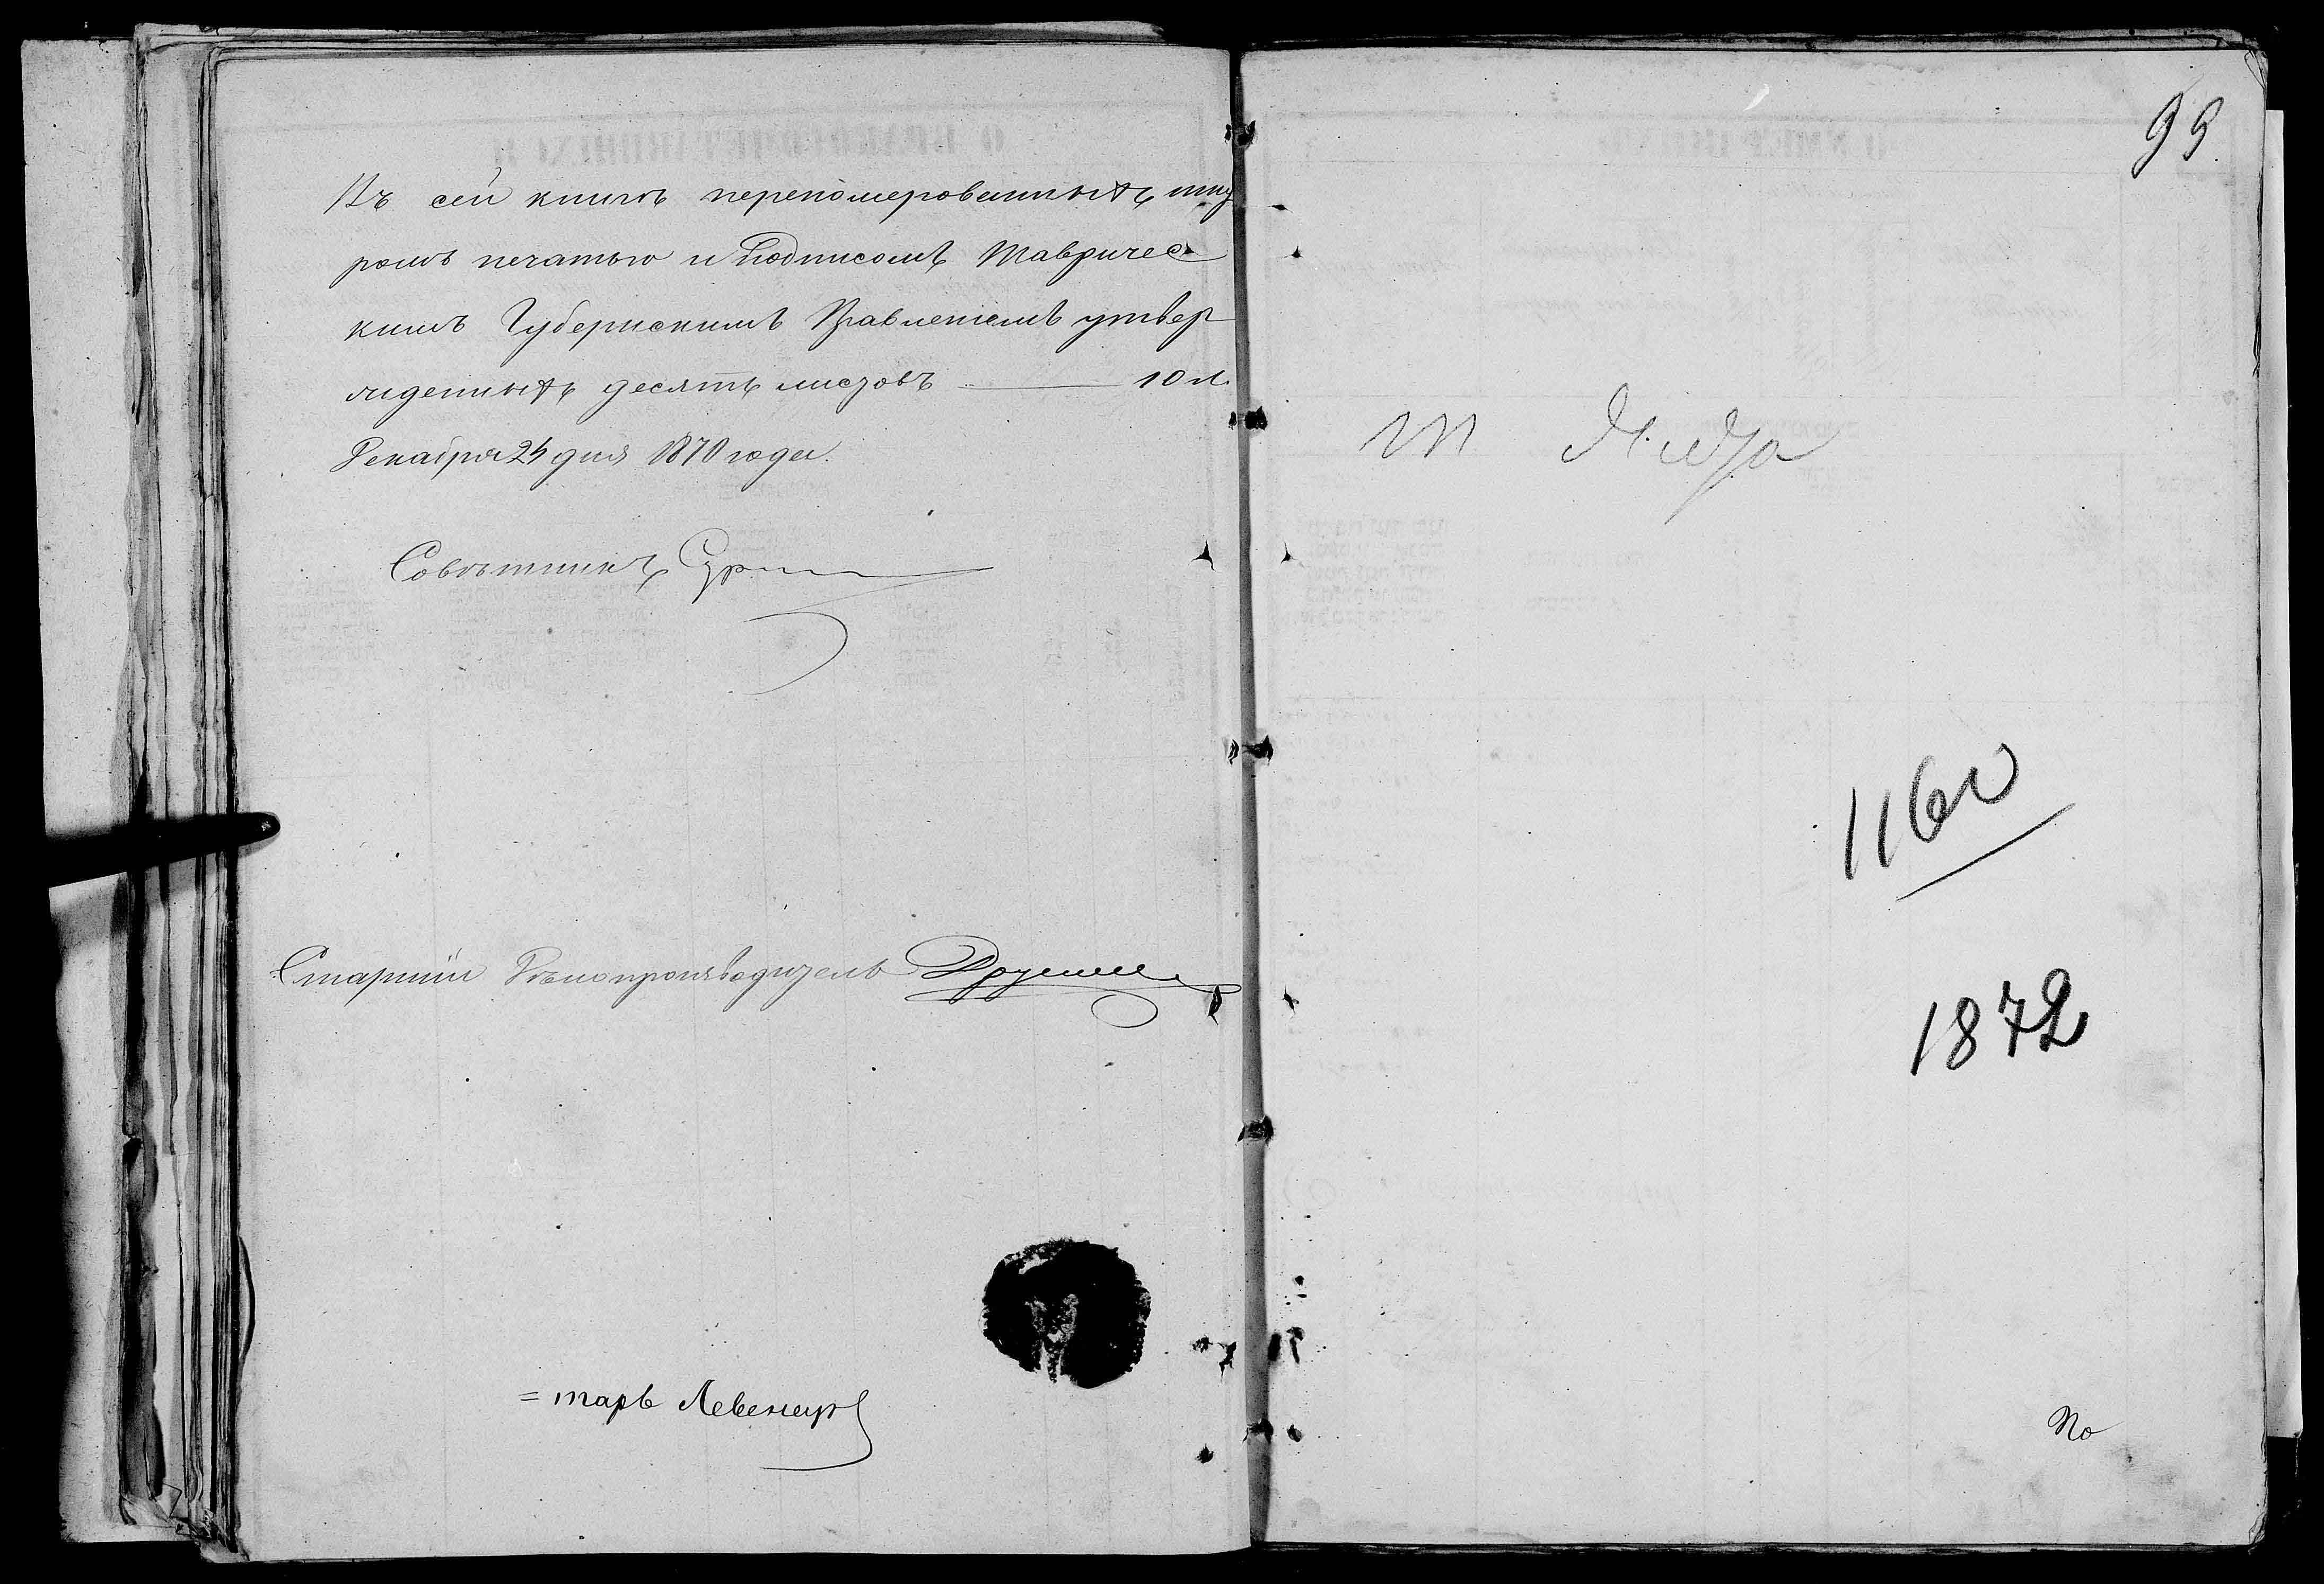 Въ сей книгѣ переномерованныхъ шну
ромъ печатью и подписомъ Тавричес
кимъ Губернскимъ Правленіемъ утвер
жденныхъ десять листовъ 10 л.
Декабря 24 дня 1870 года.
Совѣтникъ
Старшій Дѣлопроизводитель
= тарь
99
1160
1872
По